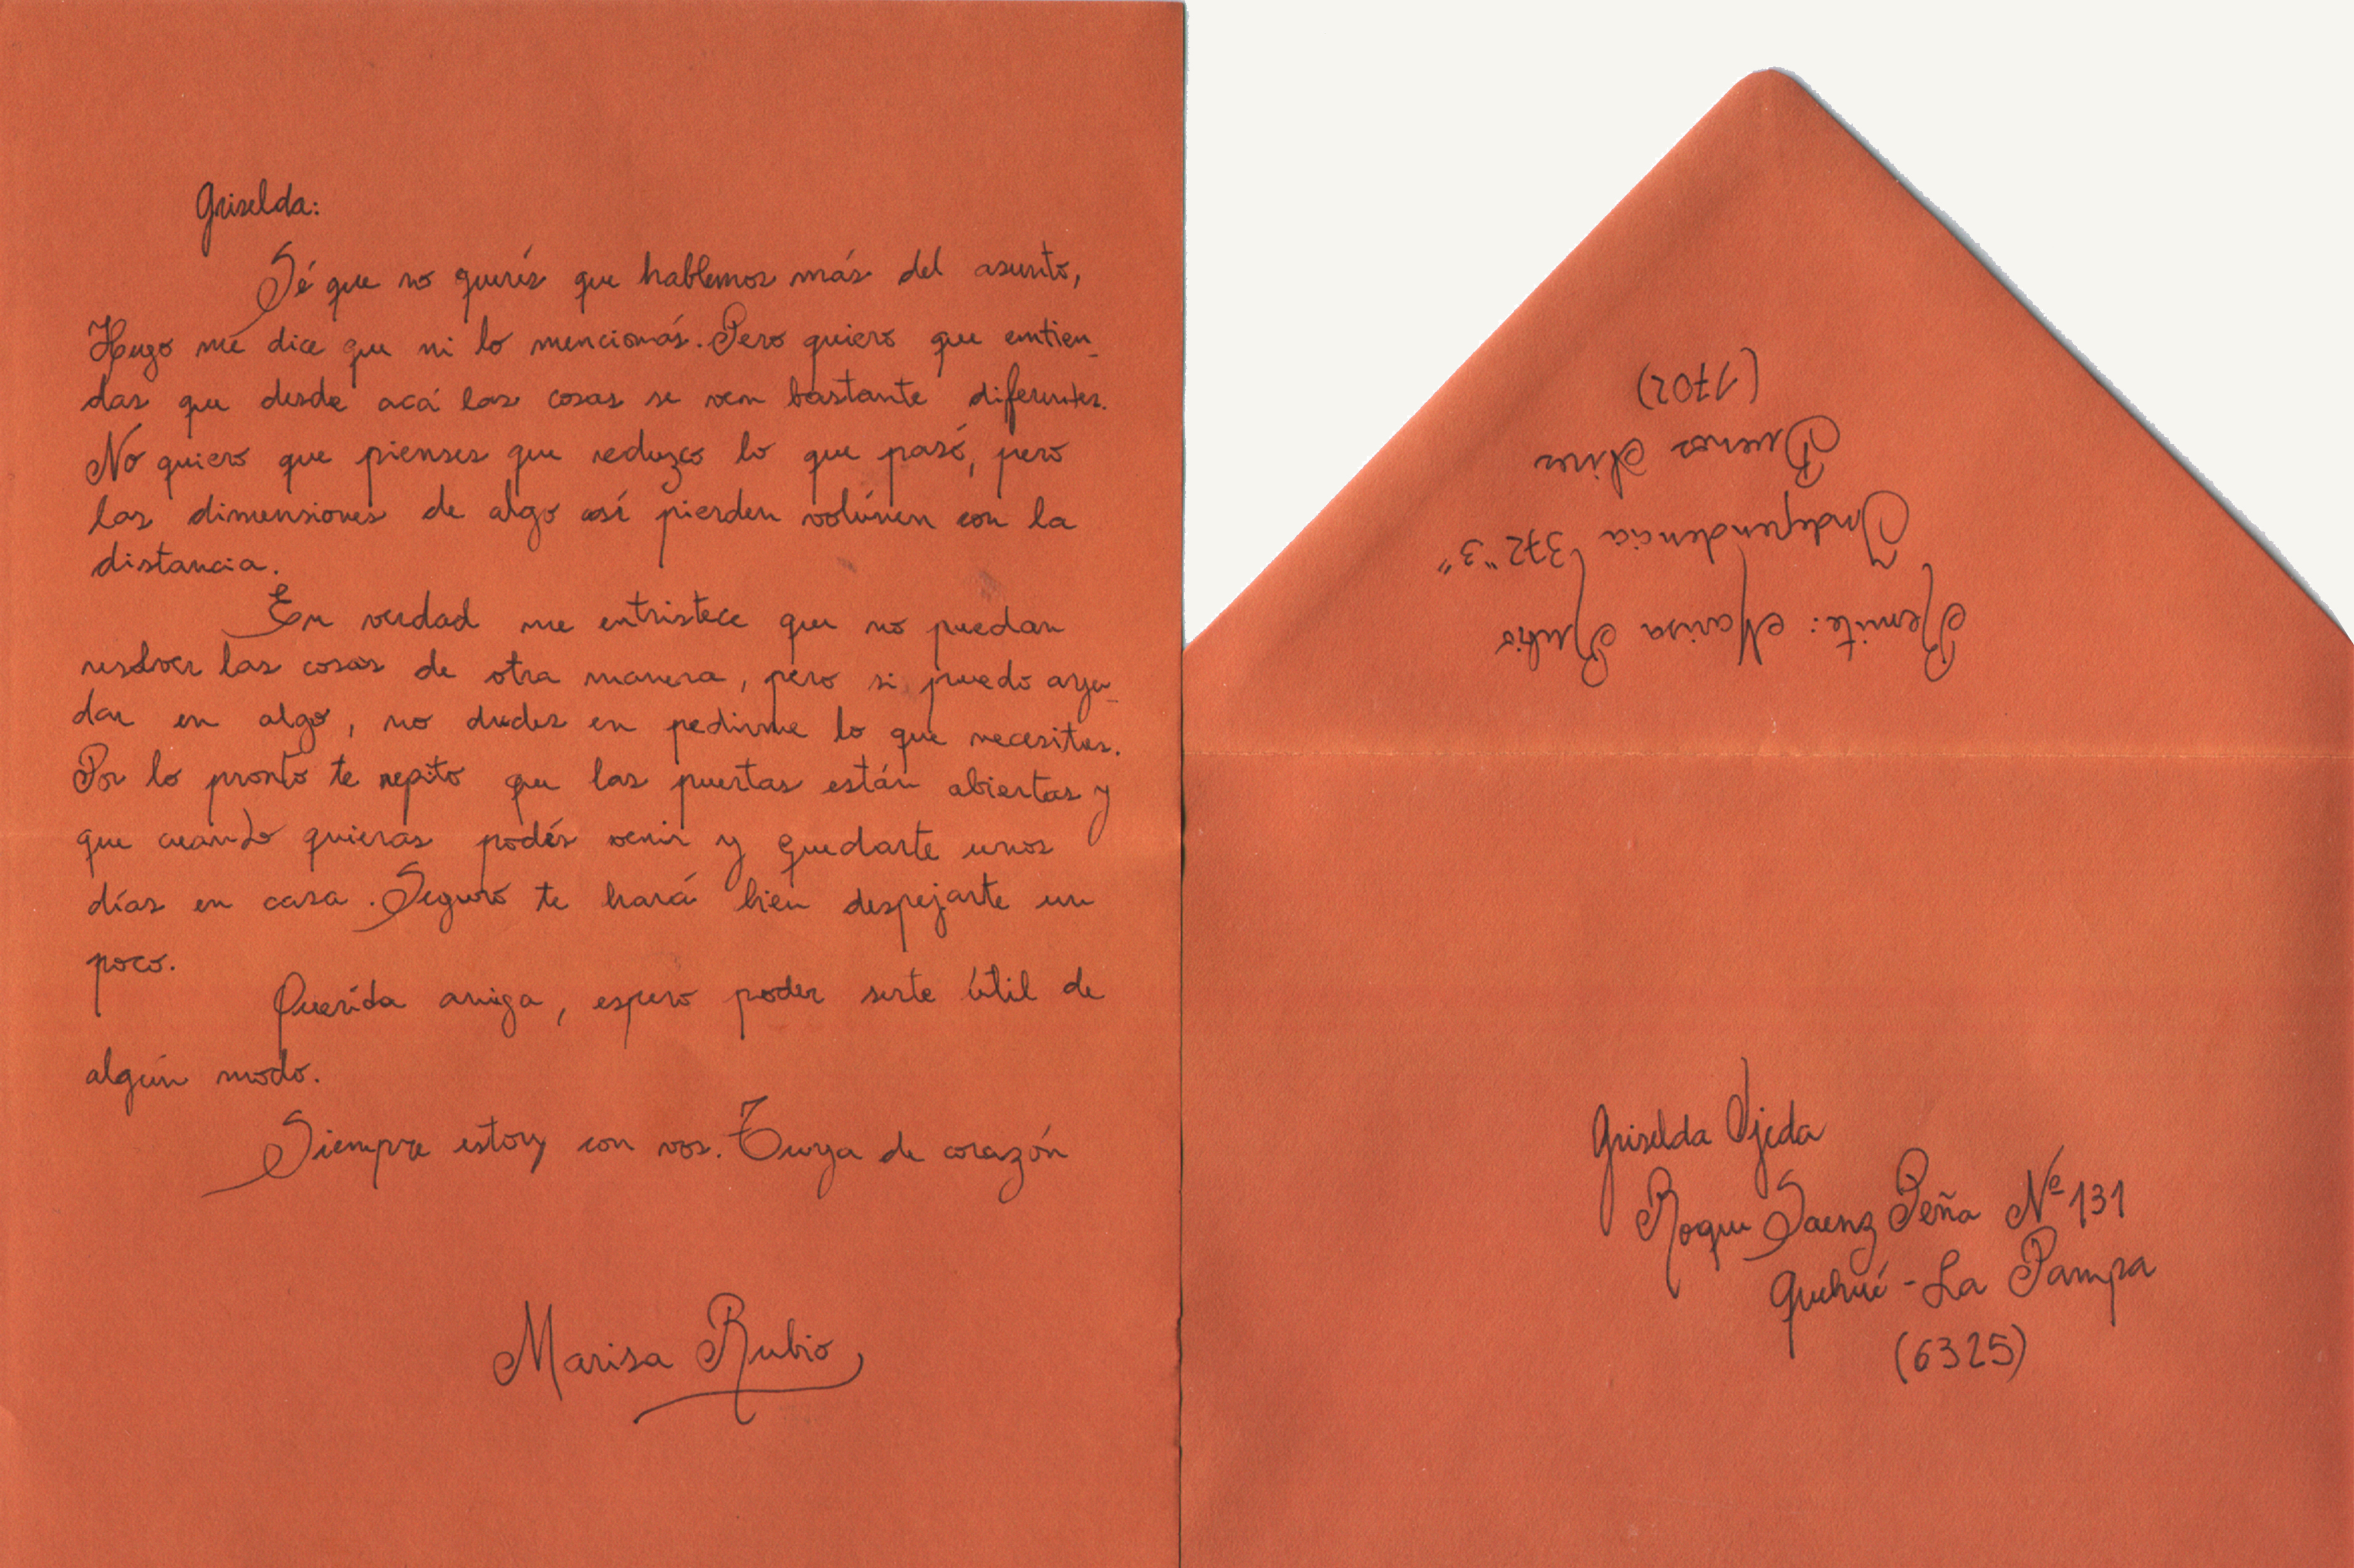 Griselda:
Sé que no querés que hablemos más del asunto,
Hugo me dice que ni lo mencionás. Pero quiero que entien-
das que desde acá las cosas se ven bastante diferentes.
No quiero que pienses que reduzco lo que pasó, pero
las dimensiones de algo así pierden volúmen con la
distancia.
En verdad me entristece que no puedan
resolver las cosas de otra manera, pero si puedo ayu-
dar en algo, no dudes en pedirme lo que necesites.
Por lo pronto te repito que las puertas están abiertas y
que cuando quieras podés venir y quedarte unos
días en casa. Seguro te hará bien despejarte un
poco.
Querida amiga, espero poder serte útil de
algún modo.
Siempre estoy con vos. Tuya de corazón
Marisa Rubio
Remite: Marisa Rubio
Independencia 372 "3"
Buenos Aires
(1702)
Griselda Ojeda
Roque Saenz Peña Nº 131
Quehué - La Pampa
(6325)